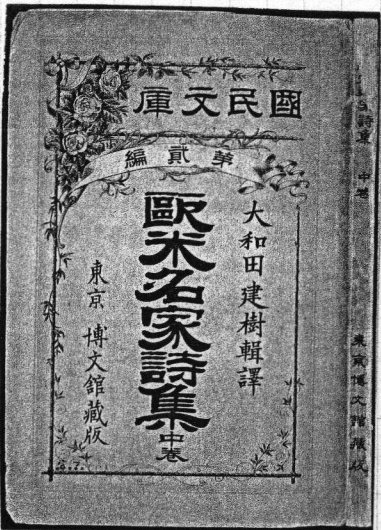 國民文庫
第貳編
大和田建樹輯譯
歐米名家詩集中卷
東京 博文館藏版
詩集 中卷
東京博文館藏版